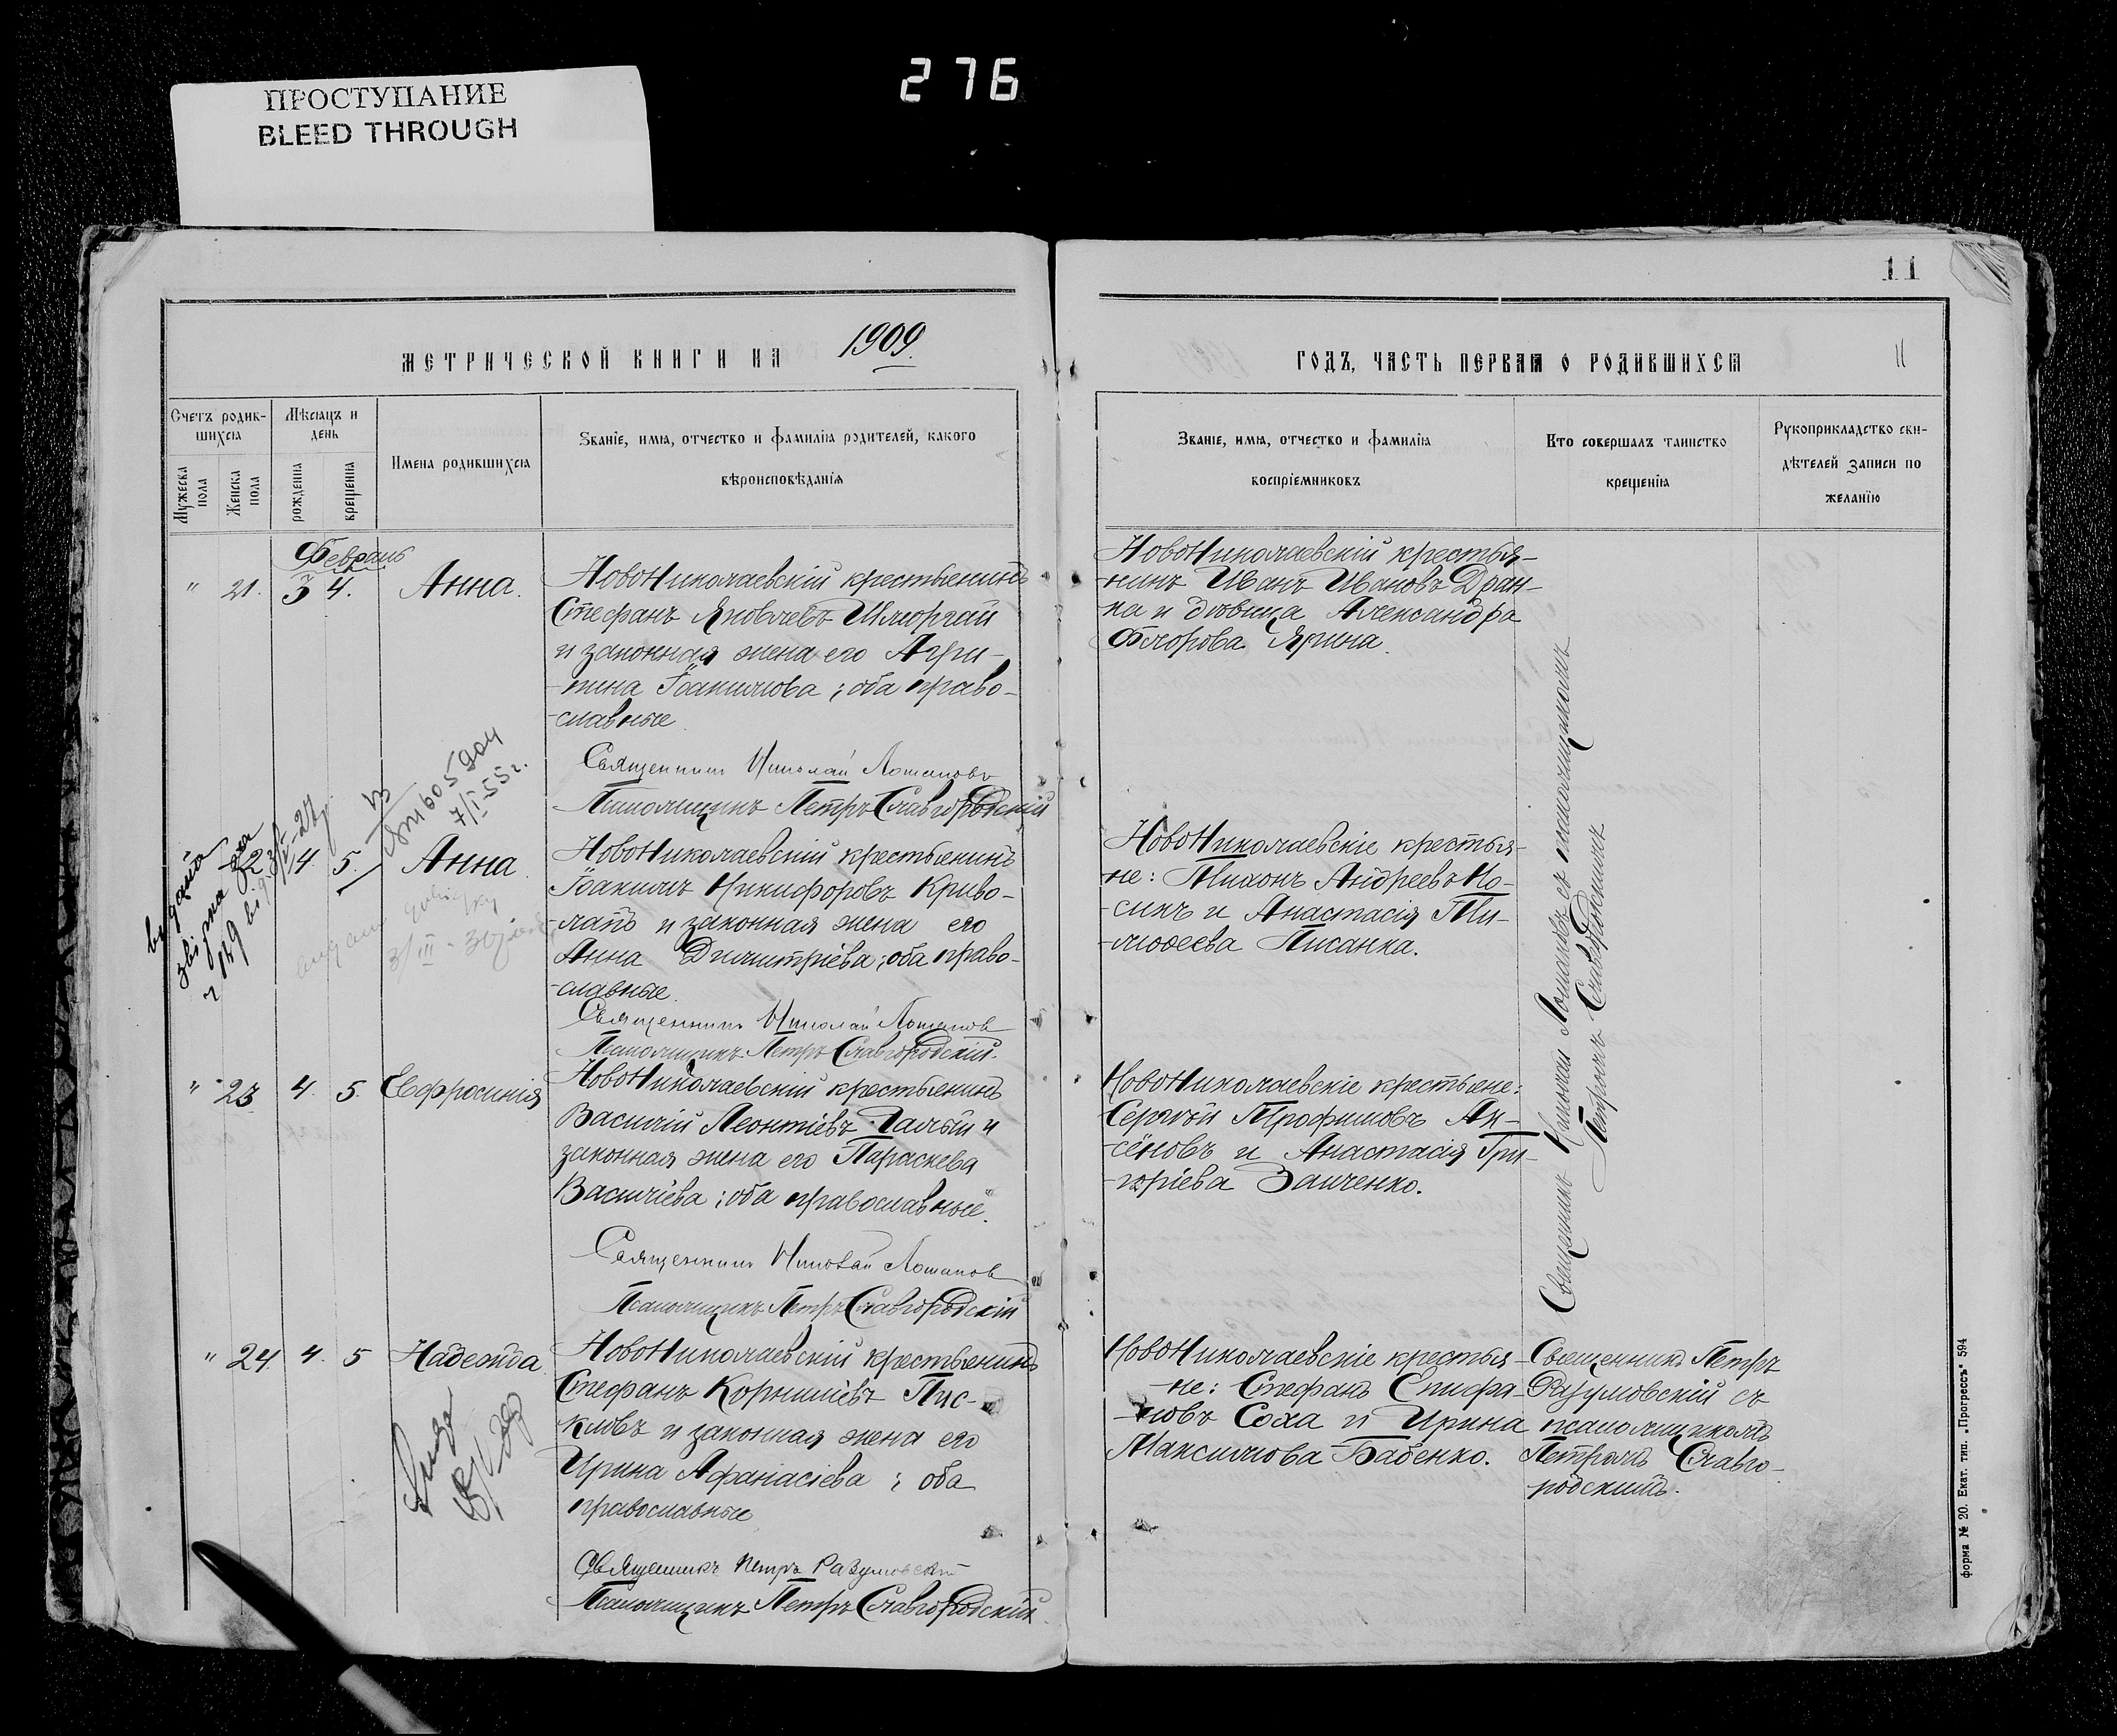 ПРОСТУПАНИЕ
BLEED THROUGH
276
11
МЕТРИЧЕСКОЙ КНИГИ НА 1909
ГОДЪ, ЧАСТЬ ПЕРВАЯ О РОДИВШИХСЯ
11
Счетъ родив-
шихся
Мужеска пола
Женска пола
Мѣсяцъ и
день
рожденія
крещенія
Имена родившихся
Званіе, имя, отчество и фамилія родителей, какого
вѣроисповѣданія
Званіе, имя, отчество и фамилія
воспріемниковъ
Кто совершалъ таинство
крещенія
Рукоприкладство сви-
дѣтелей записи по
желанію
Февраль
" 21. 3 4. Анна.
НовоНиколаевскій крестьянинъ
Стефанъ Яковлевъ
и законная жена его Агри-
-пина Іоакимова; оба право-
-славные.
Священникъ Николай
Псаломщикъ Петръ Славгородскій
НовоНиколаевскій крестья-
-нинъ Иванъ Ивановъ Дран-
-ка и дѣвица Александра
Ѳедорова Ярина.
видано
7/I-55 г.
22 4. 5. Анна
НовоНиколаевскій крестьянинъ
Іоакимъ Никифоровъ Криво-
-лапъ и законная жена его
Анна Димитріева; оба право-
-славные.
Священникъ Николай
Псаломщикъ Петръ Славгородскій.
НовоНиколаевскіе крестья-
не: Тихонъ Андреевъ Но-
-сикъ и Анастасія Ти-
-моѳеева Писанка.
Священникъ Николай
съ псаломщикомъ
Петромъ Славгородскимъ
" 23 4. 5. Евфросинія
НовоНиколаевскій крестьянинъ
Василій Леонтіевъ Галый и
законная жена его Параскева
Василіева; оба православные.
Священникъ Николай
Псаломщикъ Петръ Славгородскій
НовоНиколаевскіе крестьяне:
Сергѣй Трофимовъ Ак-
-сёновъ и Анастасія Гри-
-горіева Заиченко.
" 24. 4. 5 Надежда
НовоНиколаевскій крестьянинъ
Стефанъ Корниліевъ Пис-
кловъ и законная жена его
Ирина Афанасіева; оба
православные
Священникъ Петръ Разумовскій
Псаломщикъ Петръ Славгородскій.
НовоНиколаевскіе крестья-
-не: Стефанъ Епифа-
-новъ Соха и Ирина
Максимова Бабенко.
Священникъ Петръ
Разумовскій съ
псаломщикомъ
Петромъ Славго-
родскимъ.
форма № 20. Екат. тип. „Прогрессъ" 594